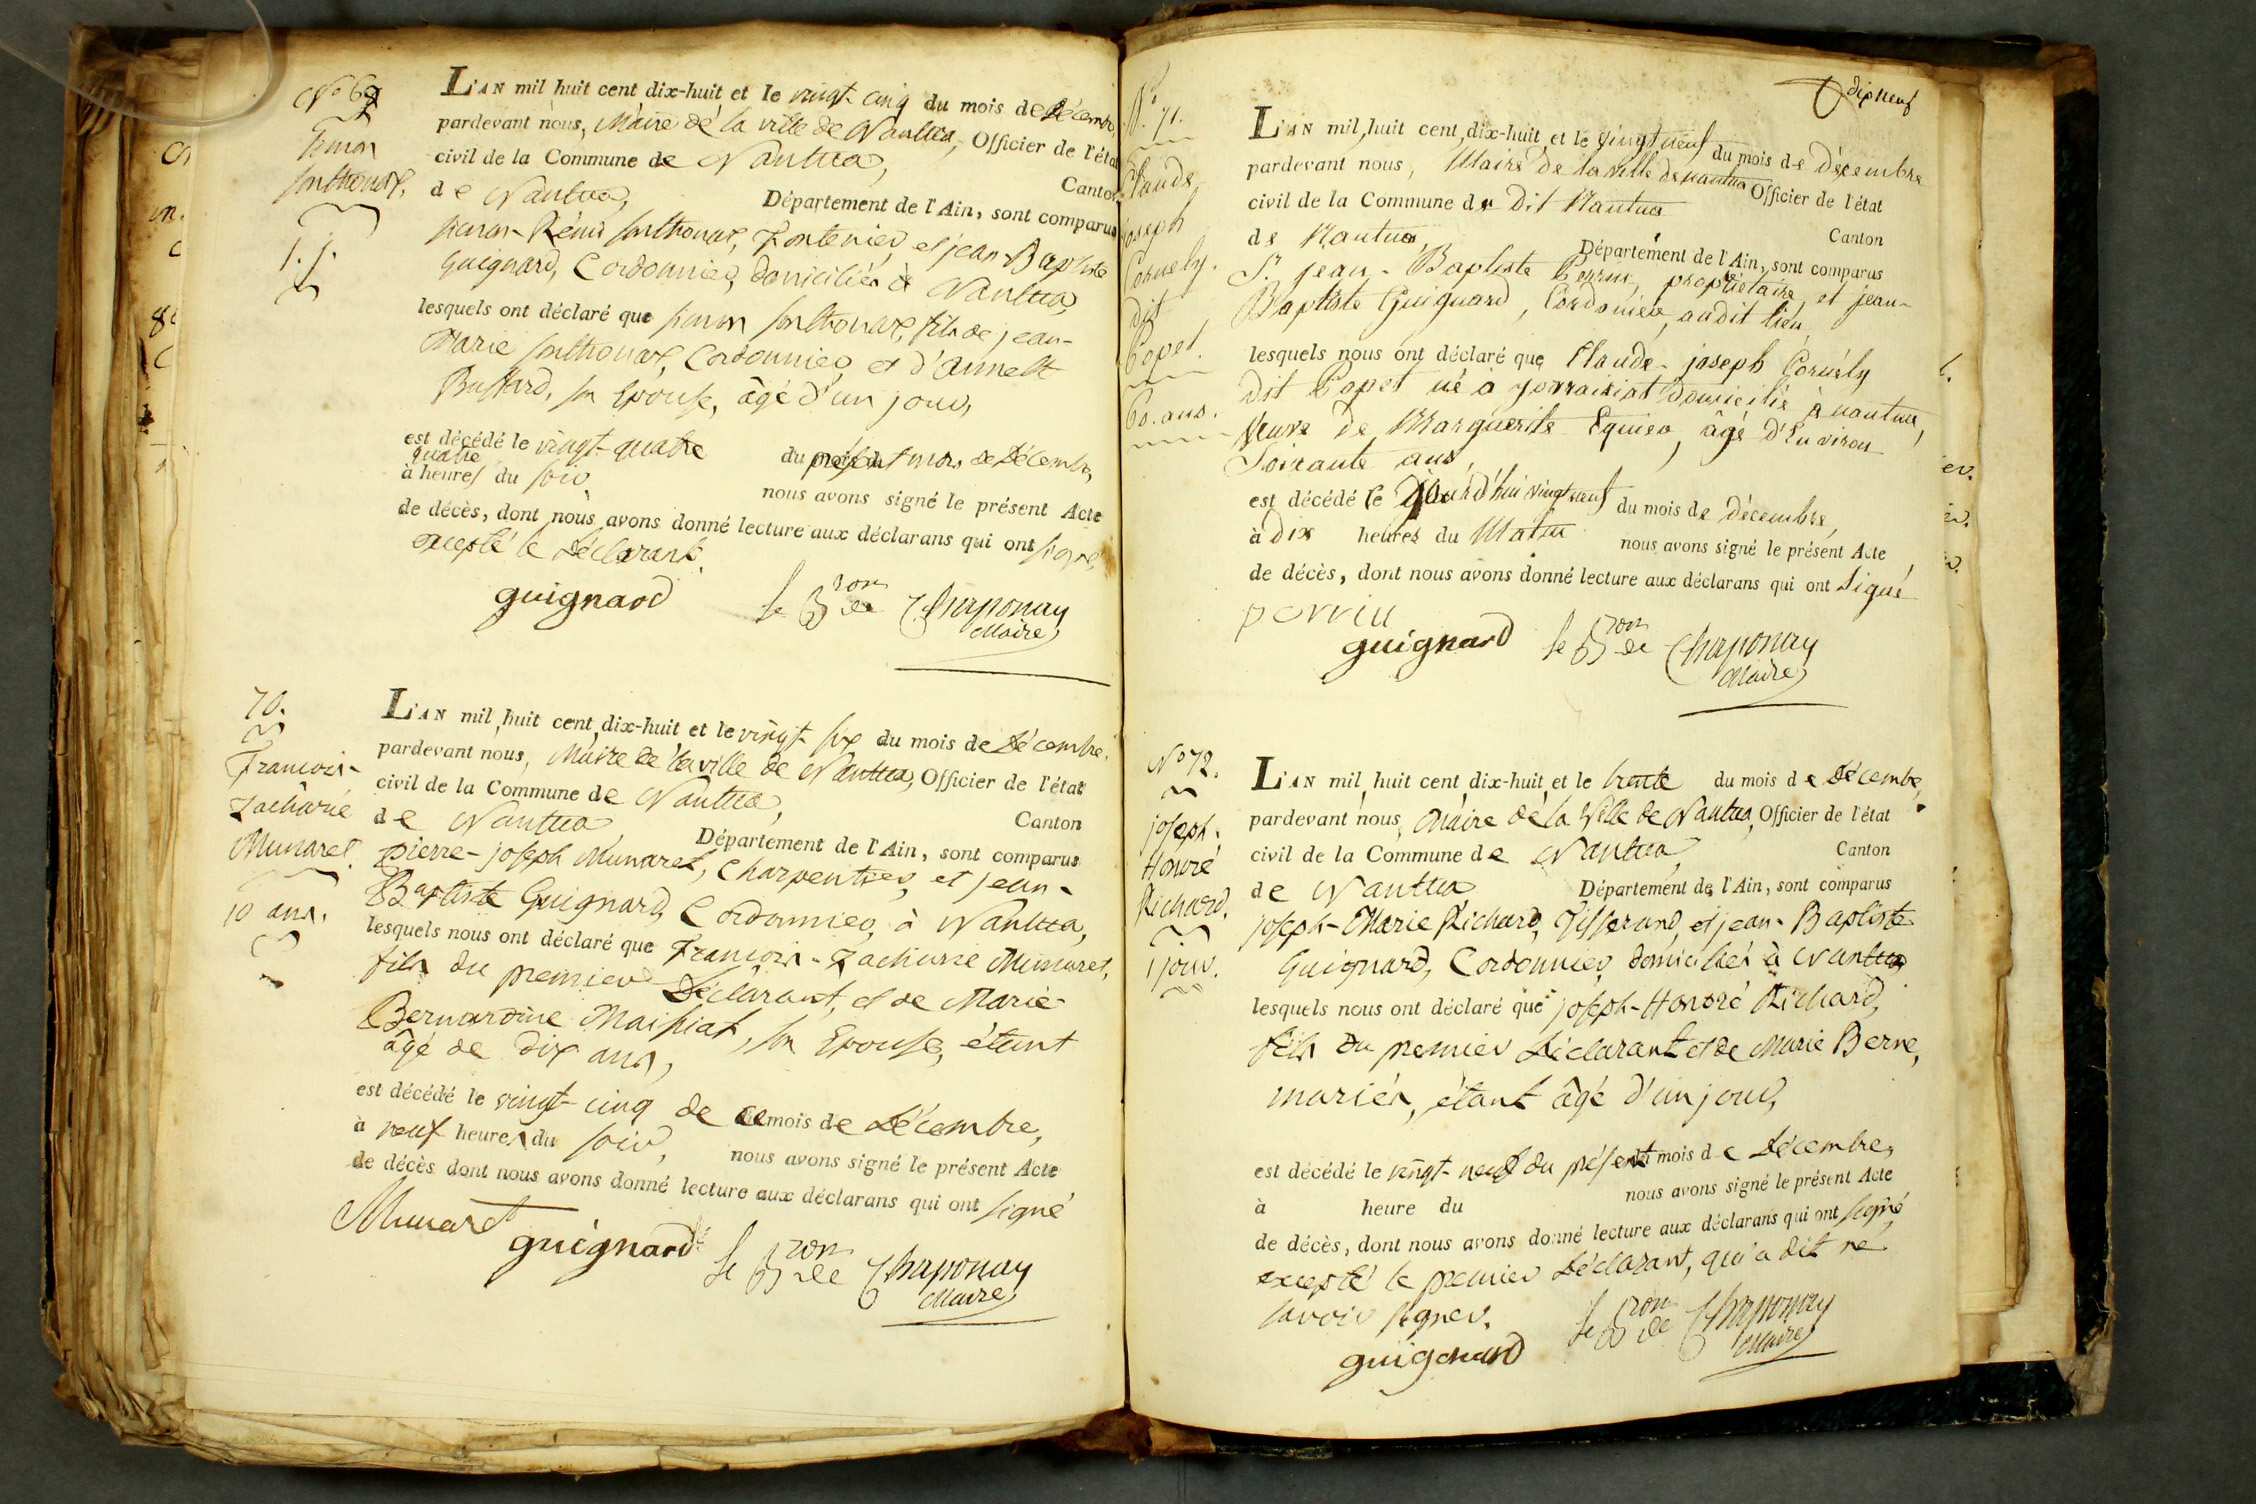 N° 69
Simon
Sonthonax.
1. j.
L'AN mil huit cent dix-huit et le vingt-cinq du mois de Décembre,
pardevant nous, Maire de la ville de Nantua, Officier de l'état
civil de la Commune de Nantua,
Canton
de Nantua, Département de l'Ain, sont comparus
Rémi Sonthonax, et jean-Baptiste
Guignard, Cordonnier, domiciliés à Nantua,
lesquels ont déclaré que Sonthonax, fils de jean-
Marie Sonthonax, Cordonnier, et d'Annette
son Epouse, âgé d'un jour,
est décédé le vingt-quatre du présent mois de Décembre,
quatre
à heures du soir nous avons signé le présent Acte
de décès, dont nous avons donné lecture aux déclarans qui ont signé,
excepté le Déclarant.
guignard le Bron de Chaponay
Maire
70.
François-
Zacharie
Munaret.
10 ans.
L'AN mil huit cent dix-huit et le vingt-six du mois de Décembre,
pardevant nous, Maire de la ville de Nantua, Officier de l'état
civil de la Commune de Nantua,
Canton
de Nantua, Département de l'Ain, sont comparus
Pierre-joseph Munaret, Charpentier, et jean-
Baptiste Guignard, Cordonnier, à Nantua,
lesquels nous ont déclaré que François-Zacharie Munaret,
fils du premier Déclarant, et de Marie-
Bernardine Maissiat, son Epouse, étant
âgé de dix ans,
est décédé le vingt-cinq de ce mois de Décembre,
à neuf heures du soir, nous avons signé le présent Acte
de décès dont nous avons donné lecture aux déclarans qui ont signé
Munaret
guignard le Bron de Chaponay
Maire
dix neuf
N° 71.
Claude
joseph
Cornely.
dit
Popet.
60. ans.
L'AN mil huit cent dix-huit et le vingt neuf du mois de décembre
pardevant nous, Maire de la ville de nantua Officier de l'état
civil de la Commune de dit Nantua
Canton
de Nantua, Département de l'Ain, sont comparus
Sr. jean-Baptiste Perrin, propriétaire, et jean-
Baptiste Guignard, Cordonier, audit lieu,
lesquels nous ont déclaré que Claude-joseph Cornély
dit Popet né à domicilié à nantua,
Veuve de Marguerite Equier, âgé d'Environ
Soixante ans,
est décédé le jourd'hui vingt neuf du mois de décembre,
à dix heures du Matin nous avons signé le présent Acte
de décès, dont nous avons donné lecture aux déclarans qui ont signé
perrin
guignard le Bron de Chaponay
Maire
N° 72.
joseph-
Honoré
Richard.
1 jour.
L'AN mil huit cent dix-huit et le trente du mois de Décembre,
pardevant nous, Maire de la Ville de Nantua, Officier de l'état
civil de la Commune de Nantua, Canton
de Nantua Département de l'Ain, sont comparus
joseph-Marie Richard, Tisserand, et jean-Baptiste
Guignard, Cordonnier, domiciliés à Nantua
lesquels nous ont déclaré que joseph-Honoré Richard,
fils du premier Déclarant et de Marie Berne,
mariés, étant âgé d'un jour,
est décédé le vingt-neuf du présent mois de Décembre,
à heure du nous avons signé le présent Acte
de décès, dont nous avons donné lecture aux déclarans qui ont signé,
excepté le premier Déclarant, qui a dit ne
savoir signer.
guignard le Bron de Chaponay
Maire